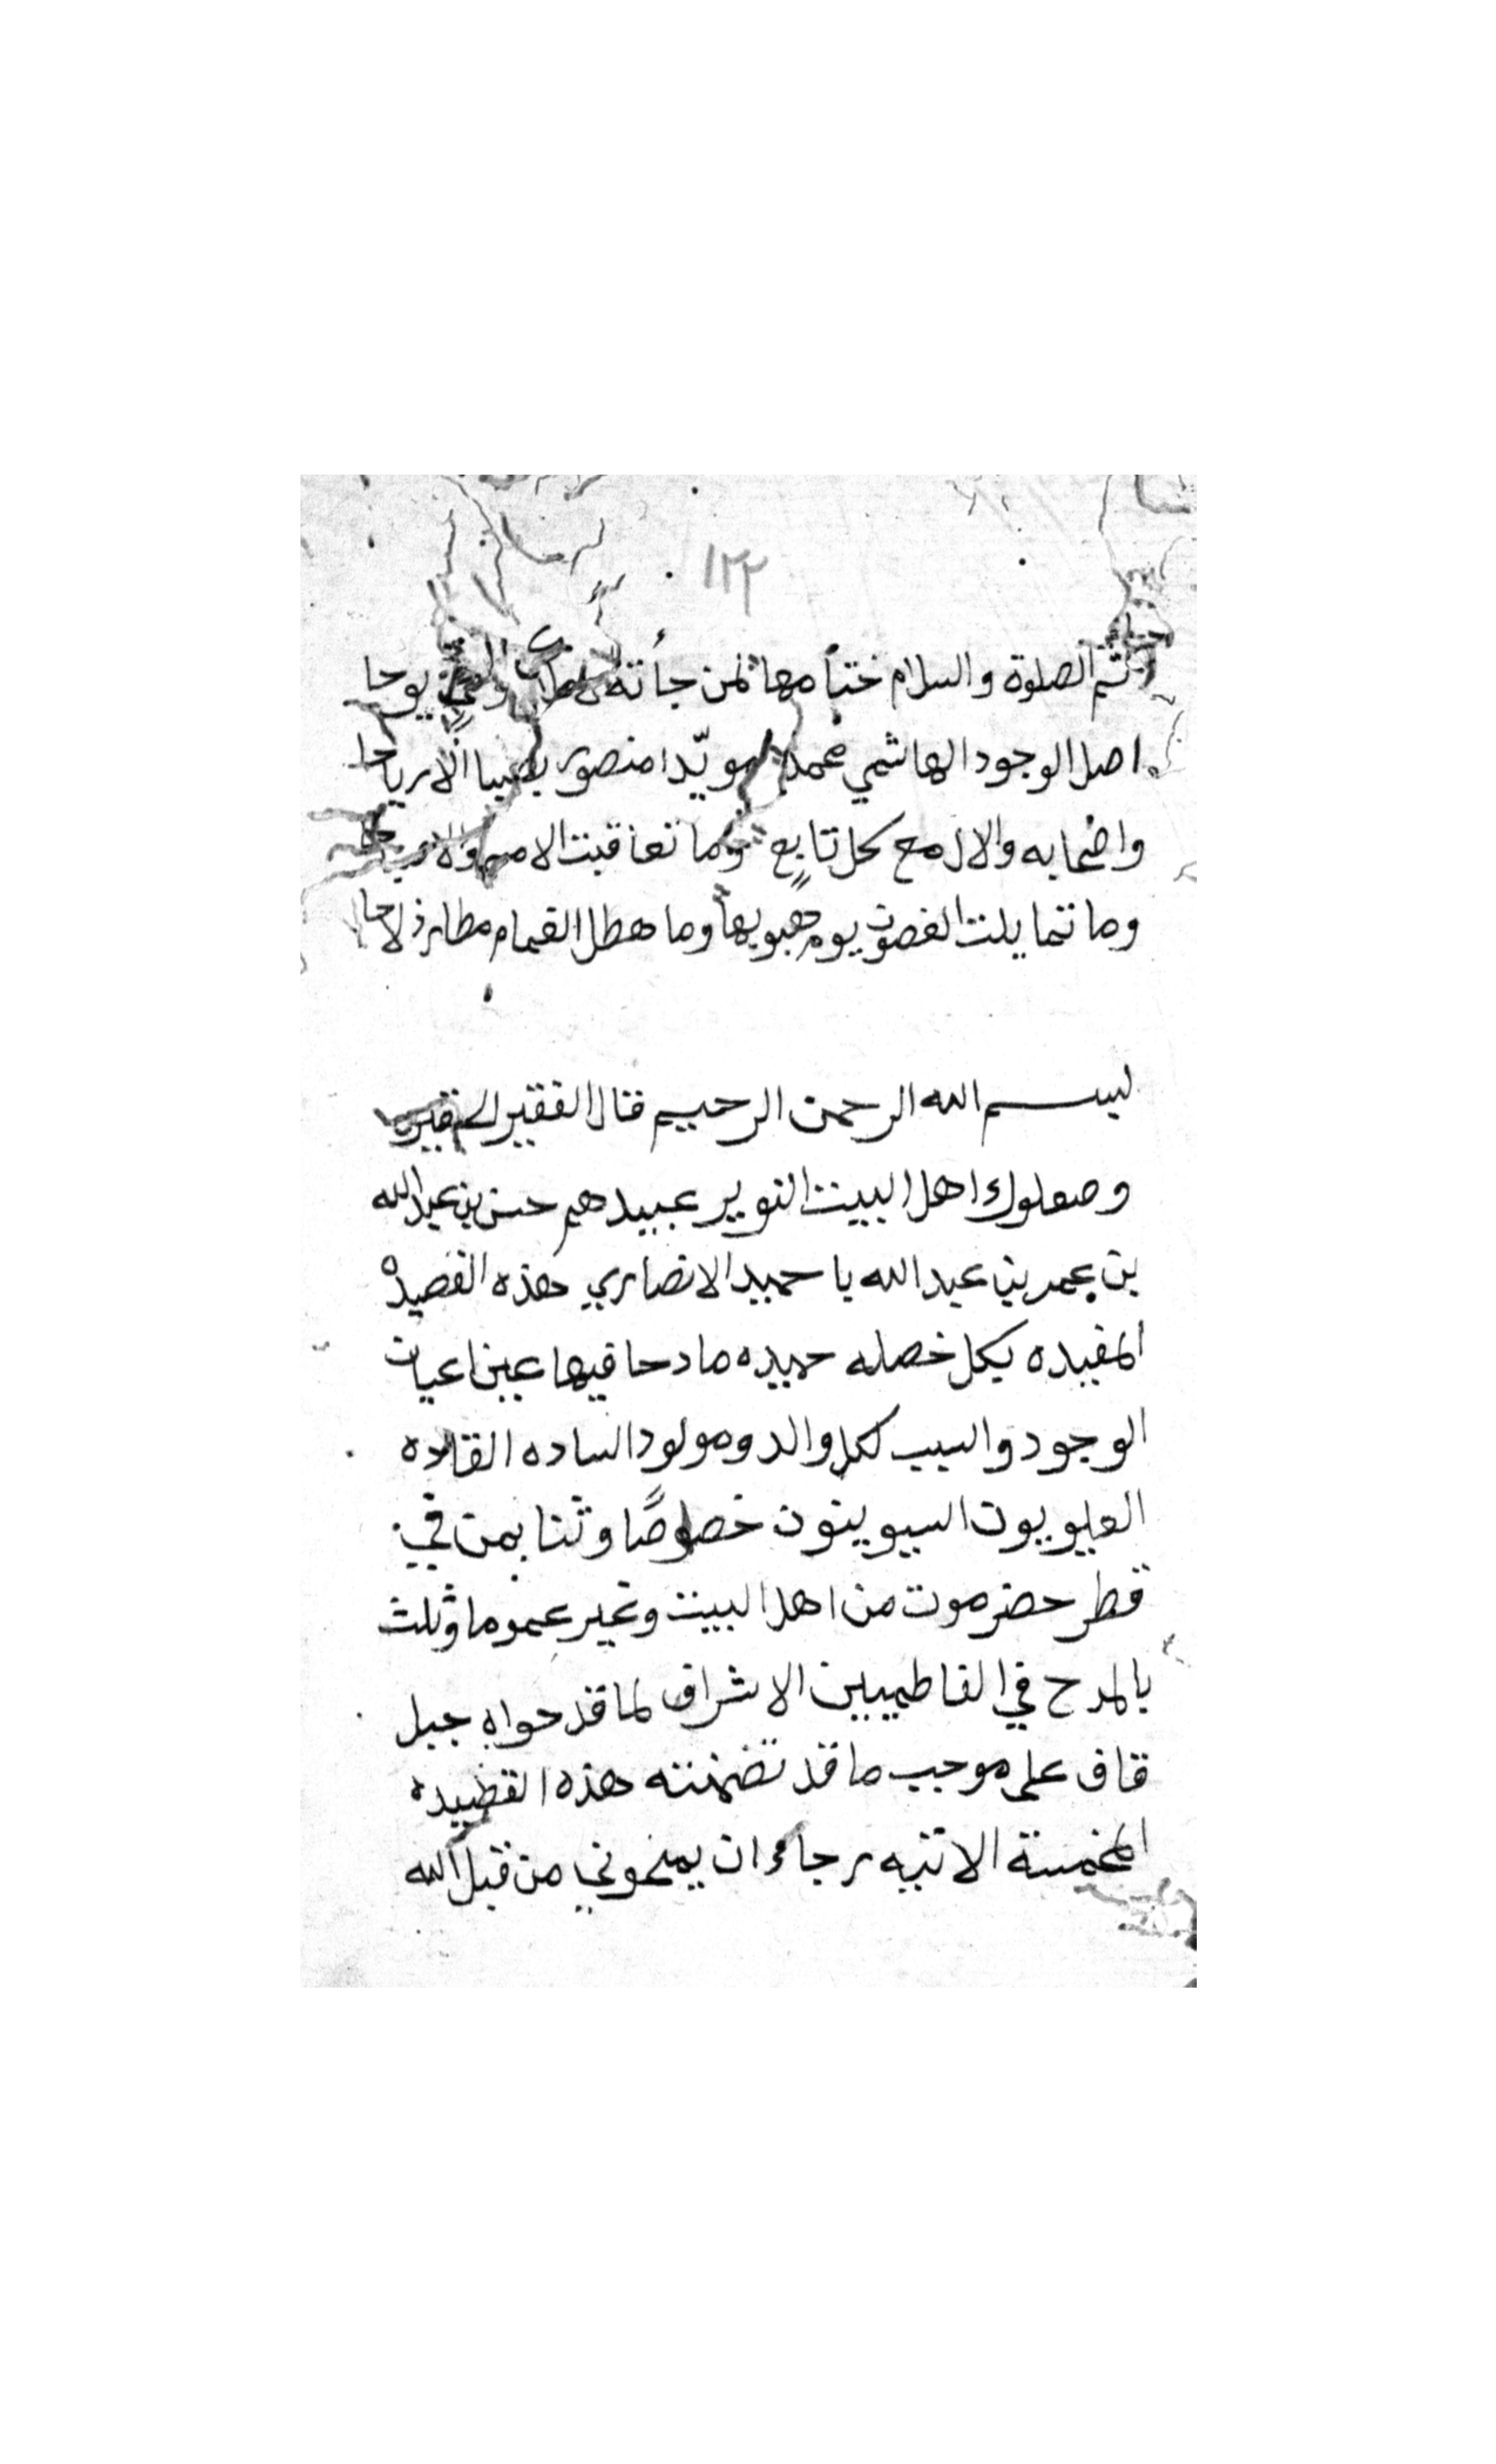 ١٢٢
ثم الصلوة والسلام ختامها لمن جأته يوحا
اصل الوجود الهاشمي محمد مويّدا منصور الارياحا
واصحابه والال مع كل تابع وما تعاقبت الامسا
وما تمايلت الغصون يوم هبوبها وما هطل الغمام مطار ذلاحا
بسم الله الرحمن الرحيم قال الفقير الحقير
وصعلوك اهل البيت النوير عبيدهم حسن بن عبدالله
بن عمر بن عبدالله با حميد الانصاري هذه القصيده
المفيده بكل خصله حميده مادحا فيها عين اعيان
الوجود والسبب لكل والد ومولود الساده القاده
العلويون النبويون خصوصًا وثنا بمن في
قطر حضرموت من اهل البيت وغير عموما وثلث
بالمدح في الفاطميين الاشراف لما قد حواه جبل
قاف على موجب ما قد تضمنته هذه القصيده
المخمسة الاتيه رجاء ان يمنحوني من قبل الله